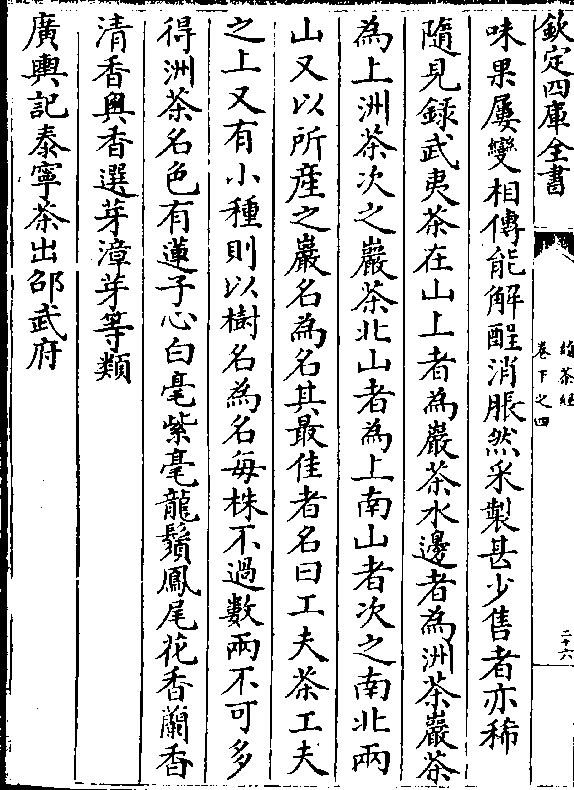 欽定四庫全書
續茶經
卷下之四
二十六
味果屢變相傳能解酲消脹然采製甚少售者亦稀
隨見録武夷茶在山上者為巖茶水邊者為洲茶巖茶
為上洲茶次之巖茶北山者為上南山者次之南北兩
山又以所産之巖名為名其最佳者名曰工夫茶工夫
之上又有小種則以樹名為名每株不過數兩不可多
得洲茶名色有蓮子心白毫紫毫龍鬚鳳尾花香蘭香
清香奥香選芽漳芽等類
廣輿記泰寧茶出邵武府